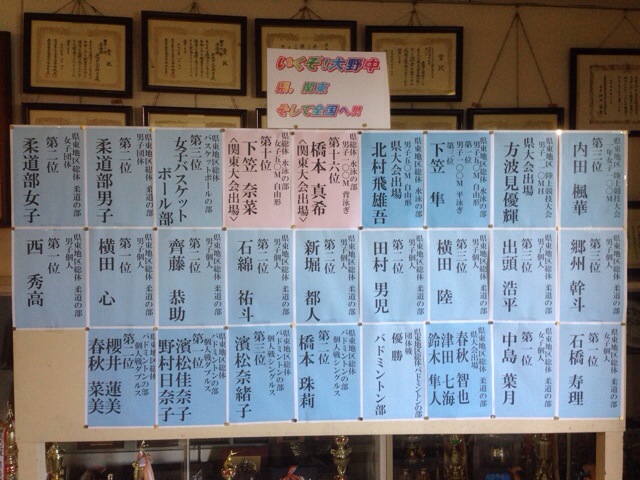 いくぞ!!大野中
県、関東
そして全国へ!!!
県東地区陸上競技大会
第三位
内田 楓華
県大会出場
方波見優輝
第三位
下笠 隼
県大会出場
北村飛雄吾
県総体 水泳の部
男子 一〇〇M 背泳ぎ
第十六位
橋本 真希
〈関東大会出場〉
県総体 水泳の部
女子 五〇M 自由形
第十位
下笠 奈菜
〈関東大会出場〉
県東地区総体
バスケットボールの部
第三位
女子バスケット
ボール部
県東地区総体 柔道の部
男子団体
第二位
柔道部男子
県東地区総体 柔道の部
女子団体
第二位
柔道部女子
県東地区総体 柔道の部
男子個人
第三位
郷州 幹斗
県東地区総体 柔道の部
男子個人
第三位
出頭 浩平
県東地区総体 柔道の部
男子個人
第三位
横田 陸
県東地区総体 柔道の部
男子個人
第二位
田村 男児
県東地区総体 柔道の部
男子個人
第一位
新堀 都人
県東地区総体 柔道の部
男子個人
第一位
石綿 祐斗
県東地区総体 柔道の部
男子個人
第一位
齊藤 恭助
県東地区総体 柔道の部
男子個人
第一位
横田 心
県東地区総体 柔道の部
男子個人
第一位
西 秀高
県東地区総体 柔道の部
第二位
石橋 寿理
県東地区総体 柔道の部
女子個人
第二位
中島 葉月
県東地区総体 柔道の部
県大会出場
春秋 智也
津田 七海
鈴木 隼人
県東地区総体バドミントンの部
団体戦
優勝
バドミントン部
県東地区総体
バドミントンの部
個人戦シングルス
第一位
橋本 珠莉
県東地区総体
バドミントンの部
個人戦シングルス
第三位
濱松奈緒子
県東地区総体
バドミントンの部
個人戦ダブルス
第一位
濱松佳奈子
野村日奈子
県東地区総体
バドミントンの部
個人戦ダブルス
第二位
櫻井 蓮美
春秋 菜美